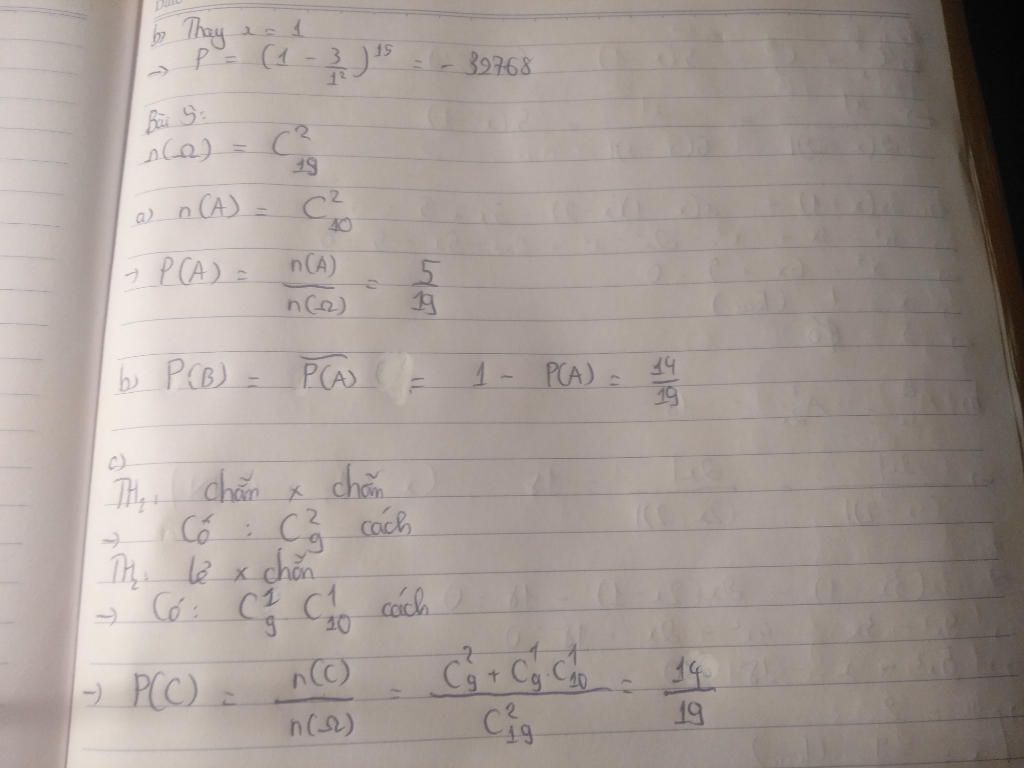 b) Thay x = 1
→ P = (1 - 3/1²)¹⁵ = - 32768
Bài 5:
n(Ω) = C²₁₉
a) n(A) = C²₁₀
→ P(A) = n(A)/n(Ω) = 5/19
b) P(B) = \overline{P(A)} = 1 - P(A) = 14/19
c)
TH₁: chẵn x chẵn
→ Có : C²₉ cách
TH₂: lẻ x chẵn
→ Có: C¹₉ C¹₁₀ cách
→ P(C) = n(C)/n(Ω) = (C²₉ + C¹₉.C¹₁₀)/C²₁₉ = 14/19